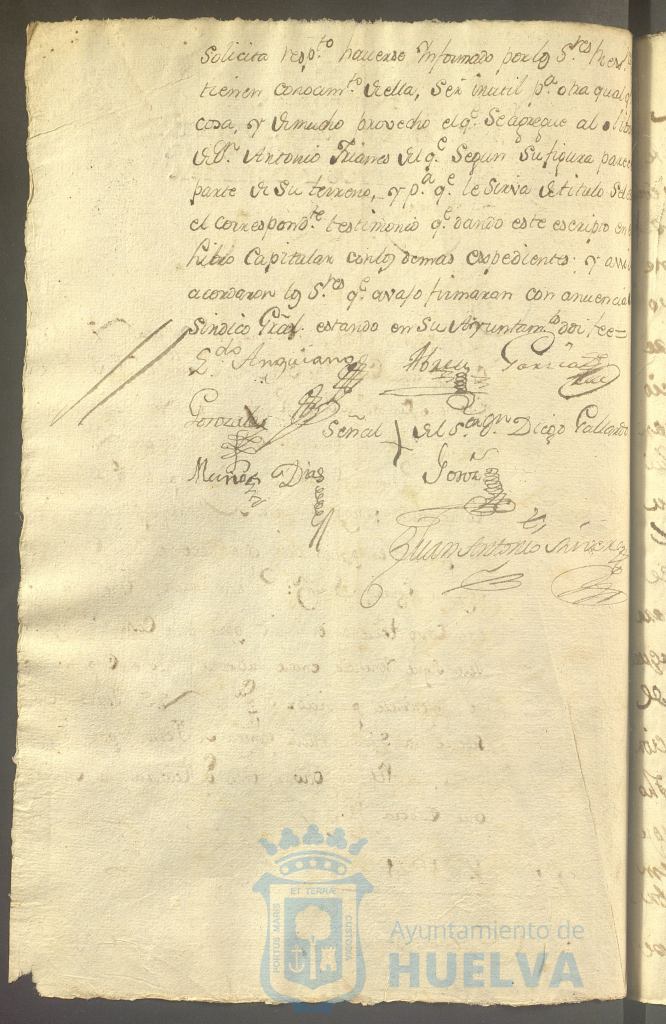 solicita resp.to haverse Informado por los S.res
tienen conocim.to della, Ser inutil p.a otra qual
cosa, y de mucho provecho el q.e Se agregue al
de D.n Antonio Trianes del q.e Segun Su figura parece
parte de Su terreno, y p.a q.e le Sirva de titulo Se
el correspond.te testimonio q.dando este escripto en
Libro Capitular con los demas espedientes: y assi
acordaron los S.res q.e avajo firmaran con anuencia
Sindico Grãl. estando en Su Ayuntam.to doi fee=
L.do Anguiano Abreu Garcia
Gonzalez Señal + del S.r D.n Diego Gallardo
Muñoz Diaz
Juan Antonio
PORTUS MARIS ET TERRAE CUSTODIA
Ayuntamiento de
HUELVA